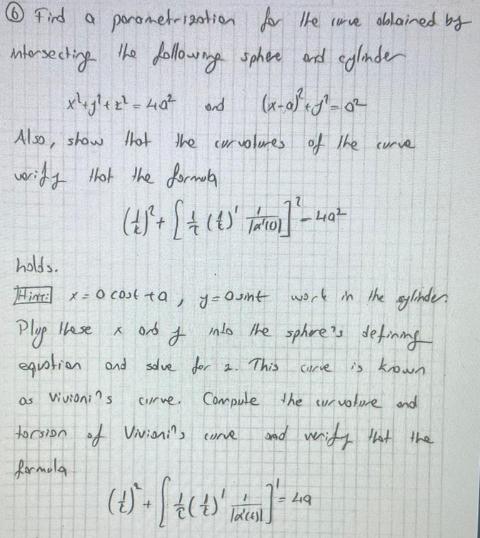 ⑥ Find a parametrization for the curve obtained by
intersecting the following sphere and cylinder
x²+y²+z² = 4a² and (x-a)²+y² = a²
Also, show that the curvatures of the curve
verify that the formula
(1/k)² + [1/τ (1/k)' 1/|α'(t)|]² = 4a²
holds.
Hint: x = a cost + a, y = a sint work in the cylinder.
Plug these x and y into the sphere's defining
equation and solve for z. This curve is known
as Viviani's curve. Compute the curvature and
torsion of Viviani's curve and verify that the
formula
(1/k)² + [1/τ (1/k)' 1/|α'(t)|]' = 4a